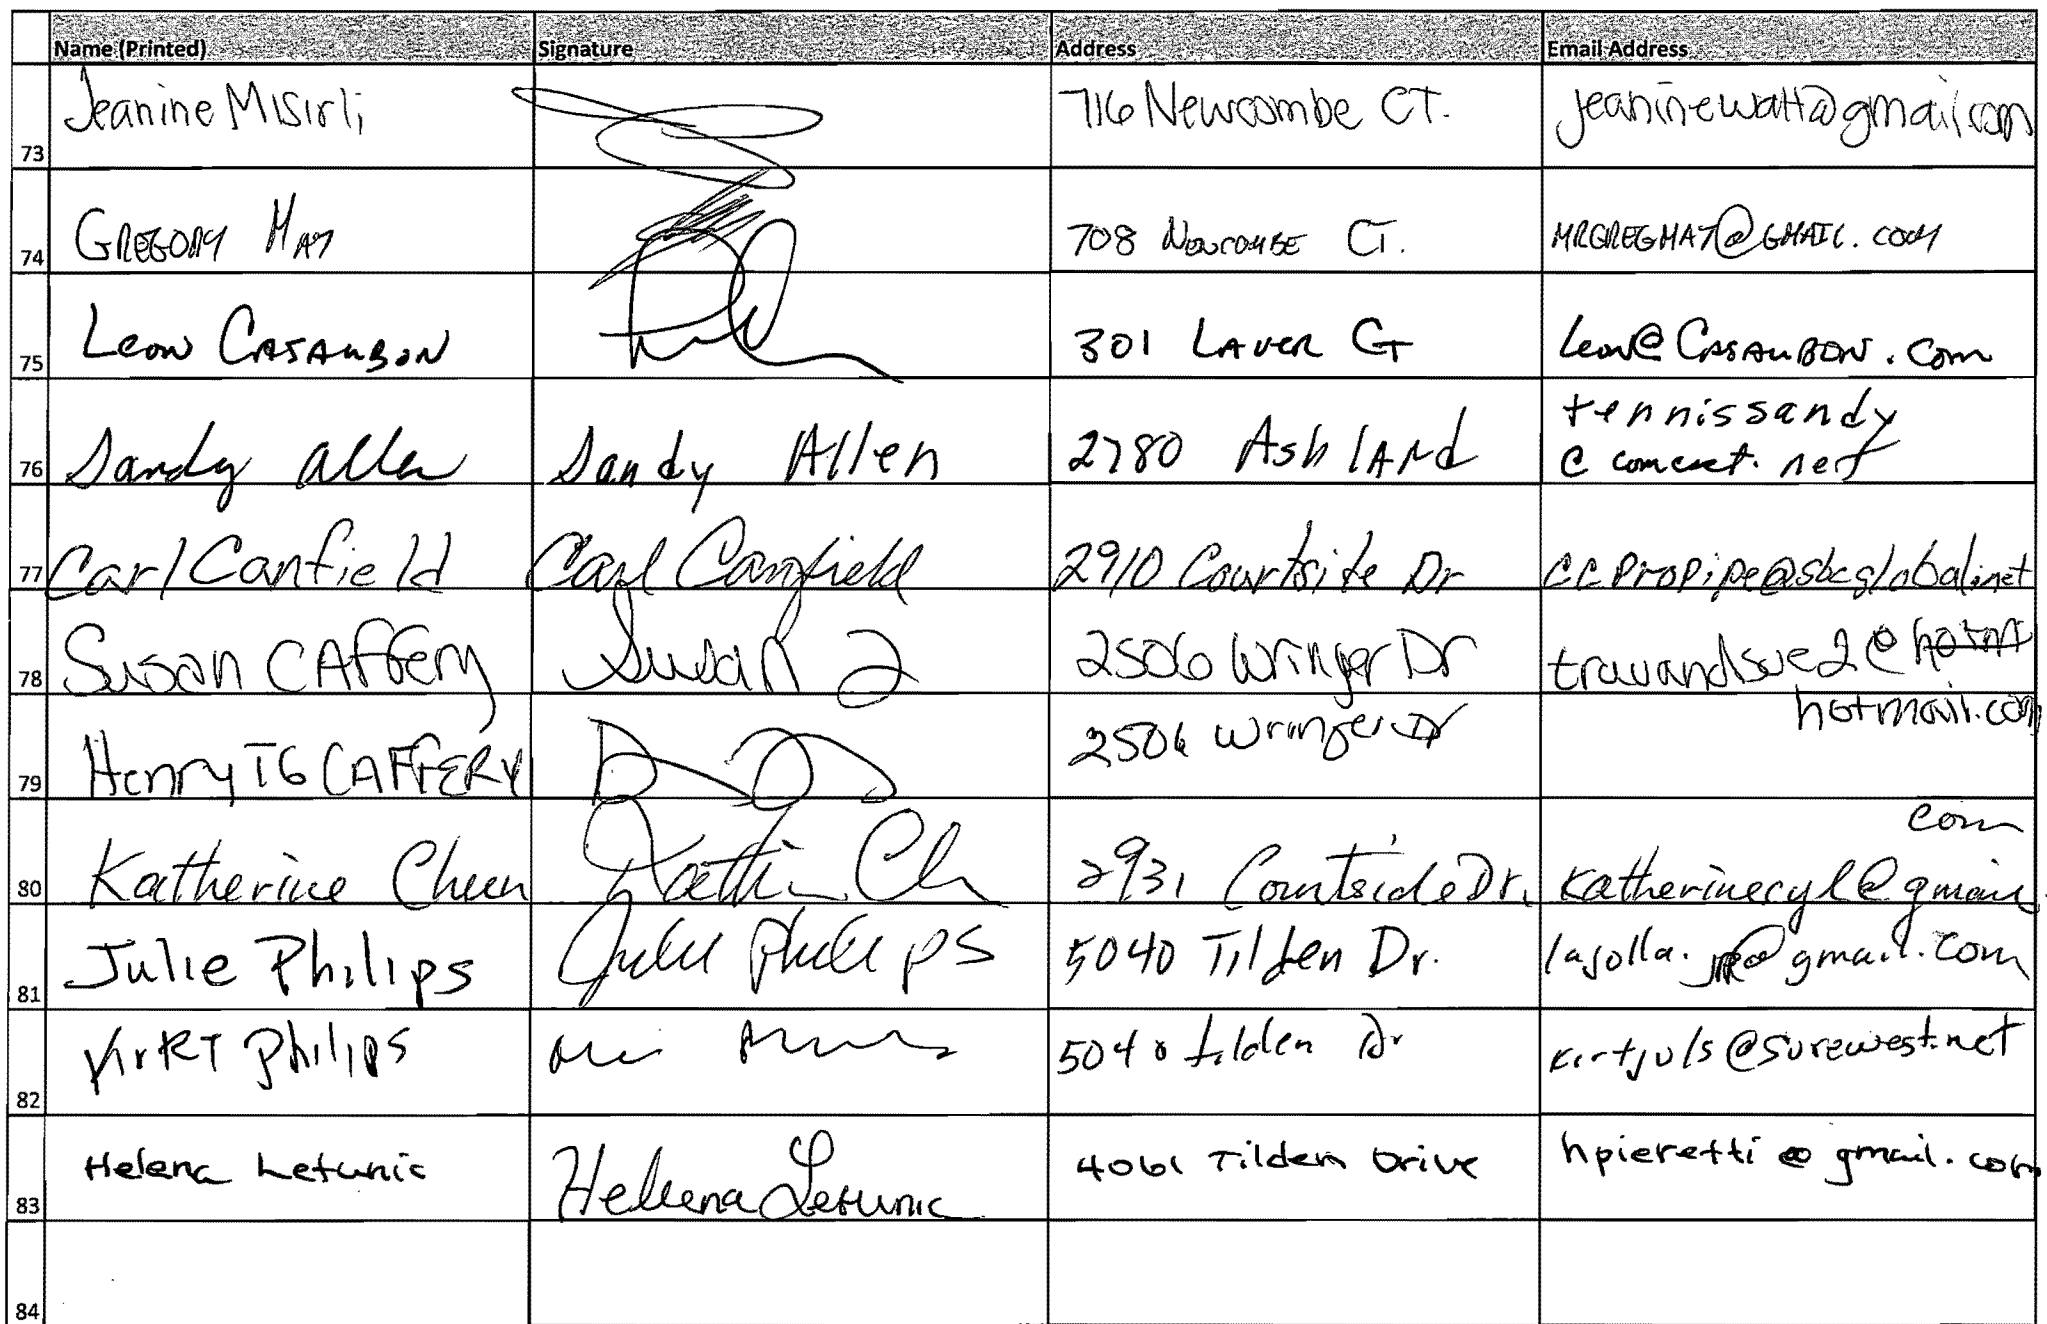 Name (Printed) Signature Address Email Address
73 Jeanine Misirli 716 Newcombe CT. jeaninewatt@gmail.com
74 GREGORY MAY 708 NEWCOMBE CT. MRGREGMAY@GMAIL.COM
75 LEON CASAUBON 301 LAVER CT Leon@CASAUBON.com
tennissandy
76 Sandy allen Sandy Allen 2780 AshlANd @ comcast.net
77 Carl Canfield Carl Canfield 2910 Courtside Dr ccpropipe@sbcglobal.net
78 Susan CAffery Susan 2506 Wringer Dr travandsue2@
hotmail.com
79 Henry TG CAFFERY 2506 Wringer Dr
com
80 Katherine Chun 2931 Courtside Dr. Katherinecyl@gmail.
81 Julie Philips Julie Philips 5040 Tilden Dr. lajolla. @gmail.com
82 KirRT Philips 5040 tilden Dr kirtjuls@surewest.net
83 Helena Letunic Helena Letunic 4061 Tilden Drive hpieretti@gmail.com
84